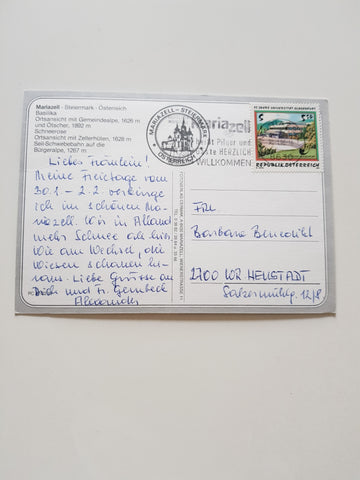 Mariazell · Steiermark · Österreich
Basilika
Ortsansicht mit Gemeindealpe, 1626 m
und Ötscher, 1892 m
Schneerose
Ortsansicht mit Zellerhüten, 1628 m
Seil-Schwebebahn auf die
Bürgeralpe, 1267 m
MARIAZELL - STEIERMARK
ÖSTERREICH
Mariazell
Pilger und
Gäste HERZLICH
WILLKOMMEN
REPUBLIK ÖSTERREICH
Liebes Fräulein!
Meine Freietage vom
30.1 - 2.2. verbringe
ich im schönen Ma-
riazell. Wir in Alland
mehr Schnee als hier
Wie am Wechsel, die
Wiesen schauen he-
raus. Liebe Grüsse an
Dich und Fr.
Frl.
Barbara Benedikt
2700 WR NEUSTADT
12/8